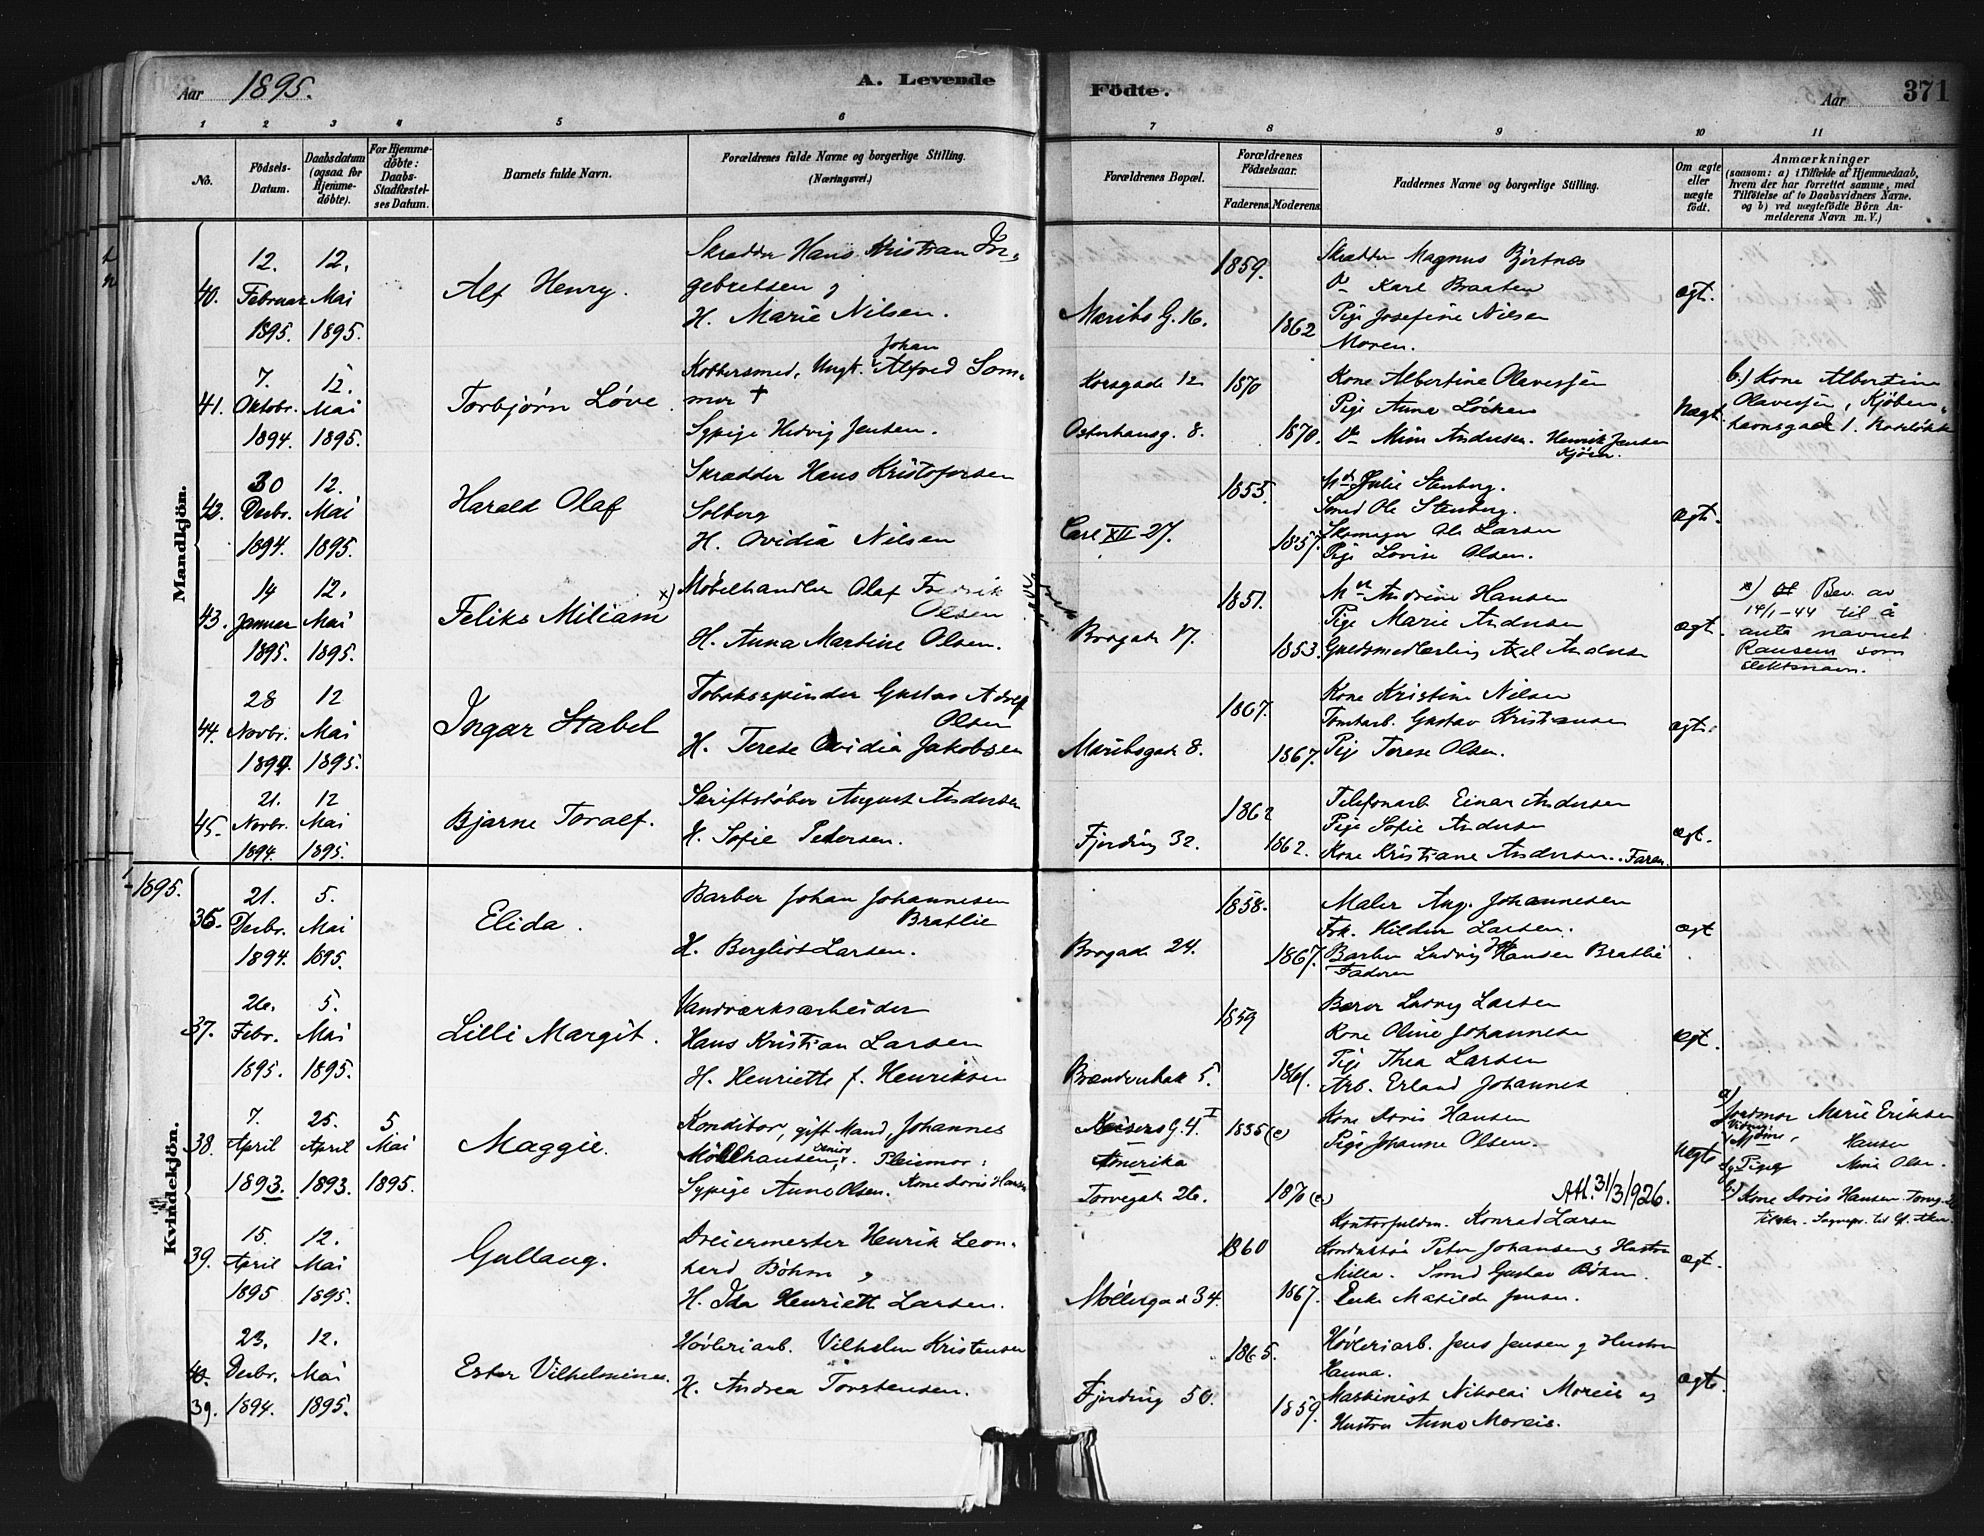 Aar 1895.
A. Levende
Födte.
Aar
371
1
2
3
4
5
6
7
8
9
10
11
No.
Födsels-
Datum.
Daabsdatum
(ogsaa for
Hjemme-
döbte).
For Hjemme-
döbte:
Daabs-
Stadfæstel-
ses Datum.
Barnets fulde Navn.
Forældrenes fulde Navne og borgerlige Stilling.
(Næringsvei.)
Forældrenes Bopæl.
Forældrenes
Födselsaar.
Faderens.
Moderens.
Faddernes Navne og borgerlige Stilling.
Om ægte
eller
uægte
födt.
Anmærkninger
(saasom: a) i Tilfælde af Hjemmedaab,
hvem der har forrettet samme, med
Tilföielse af to Daabsvidners Navne.
og b) ved uægtefödte Börn An-
melderens Navn m. V.)
Mandkjön.
40.
12.
Februar
1895.
12.
Mai
1895.
Alf Henry.
Skrædder Hans Kristian In-
gebretsen og
H. Marie Nilsen.
Maribs G. 16.
1859.
1862
Skrædder Magnus Björtnes
Do Karl Braaten
Pige Josefine Nilsen
Moren.
ægt.
41.
7.
Oktobr.
1894.
12.
Mai
1895.
Torbjørn Löve
Kobbersmed, Ungk. Johan Alfred Som-
mer †
Sypige Hedvig Jensen.
Korsgade 12
Osterhausg. 8.
1870
1870.
Kone Albertine Olavesen
Pige Anna Löcken
Do Mina Andersen. Henrik Jensen
Uægt.
b.) Kone Albertine
Olavesen, Kjöben-
havnsgade 1.
42.
30
Desbr.
1894.
12.
Mai
1895.
Harald Olaf
Skrædder Hans Kristofersen
Solberg
H. Ovidia Nilsen
Carl XII 27.
1855.
1857.
Julie Stenberg.
Smed Ole Stenberg.
Skomager Ole Larsen
Pige Lovise Olsen.
ægt.
43.
14
Januar
1895.
12.
Mai
1895.
Feliks Miliam x)
Möbelhandler Olaf Fredrik
Olsen
H. Anna Martine Olsen.
Brogade 17.
1851.
1853.
Andrine Hansen
Pige Marie Andersen
Guldsmedlærling Axel Andersen
ægt.
x) Bev. av
14/1-44 til å
anta navnet
Ransem som
slektsnavn.
44.
28
Novbr.
1894.
12
Mai
1895.
Ingar Stabel
Tobaksspinder Gustav Adolf
Olsen
H. Terese Ovidia Jakobsen
Maribsgade 8.
1867.
1867.
Kone Kristine Nilsen
Tomtarb. Gustav Kristiansen
Pige Terese Olsen.
ægt.
45.
21.
Novbr.
1894.
12
Mai
1895.
Bjarne Toralf.
Skriftstöber August Andersen
H. Sofie Pedersen.
Fjerding 32.
1862
1862.
Telefonarb Einar Andersen
Pige Sofie Andersen
Kone Kristiane Andersen. Faren.
ægt.
1895.
Kvindekjön.
36.
21.
Desbr.
1894.
5.
Mai
1895.
Elida.
Barber Johan Johannesen
Bratlie
H. Bergliot Larsen.
Brogade 24.
1858.
1867.
Maler Aug. Johannesen
Frk. Hilder Larsen.
Barber Ludvig Hansen Bratlie
Faderen
ægt
37.
26.
Febr.
1895.
5.
Mai
1895.
Lilli Margit.
Vandværksarbeider
Hans Kristian Larsen
H. Henriette f. Henriksen
5.
1859
1861.
Ludvig Larsen
Kone Oline Johannesen
Pige Thea Larsen
Arb. Erland Johannes
ægt.
38.
7.
April
1893.
25.
April
1893.
5
Mai
1895.
Maggie.
Konditor, gift Mand, Johannes
Möllhausen, senior. Pleiemor:
Sypige Anna Olsen. Kone Doris Hansen
Keisers G. 4. I
Amerika
Torvegade 26.
1835 (e)
1870 (e)
Kone Doris Hansen
Pige Johanne Olsen.
Att. 31/3/926.
uægte
a)
Jordmor Marie Eriksen
Vidner:
Hansen
Pige Olsen.
b) Kone Doris Hansen
39.
15.
April
1895
12.
Mai
1895.
Gullaug.
Dreiermester Henrik Leon-
hard Böhm og
H. Ida Henriette Larsen.
Möllergade 34.
1860
1867.
Kontorfuldm. Konrad Larsen
Konduktör Peter Johansen og Hustru
Milla. Smed Gustav Böhm.
Enke Matilde Jensen.
ægt.
40.
39.
23.
Desbr.
1894.
12.
Mai
1895.
Ester Vilhelmine.
Hövleriarb. Vilhelm Kristensen
H. Andrea Torstensen.
Fjerding 50.
1865.
1859.
Hövleriarb. Jens Jensen og Hustru
Hanna.
Maskinist Nikolai Moreis og
Hustru Anna Moreis.
ægt.